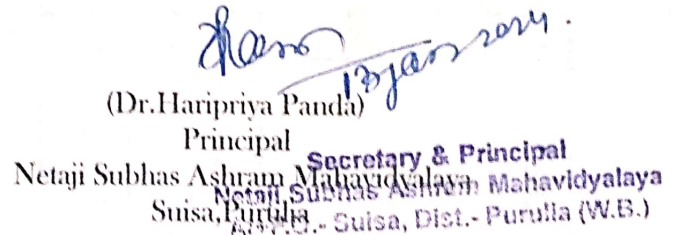 (Dr.Haripriya Panda)
Principal
Netaji Subhas Ashram Mahavidyalaya
Suisa,Purulia
Secretary & Principal
Netaji Subhas Ashram Mahavidyalaya
Suisa, Dist.- Purulia (W.B.)